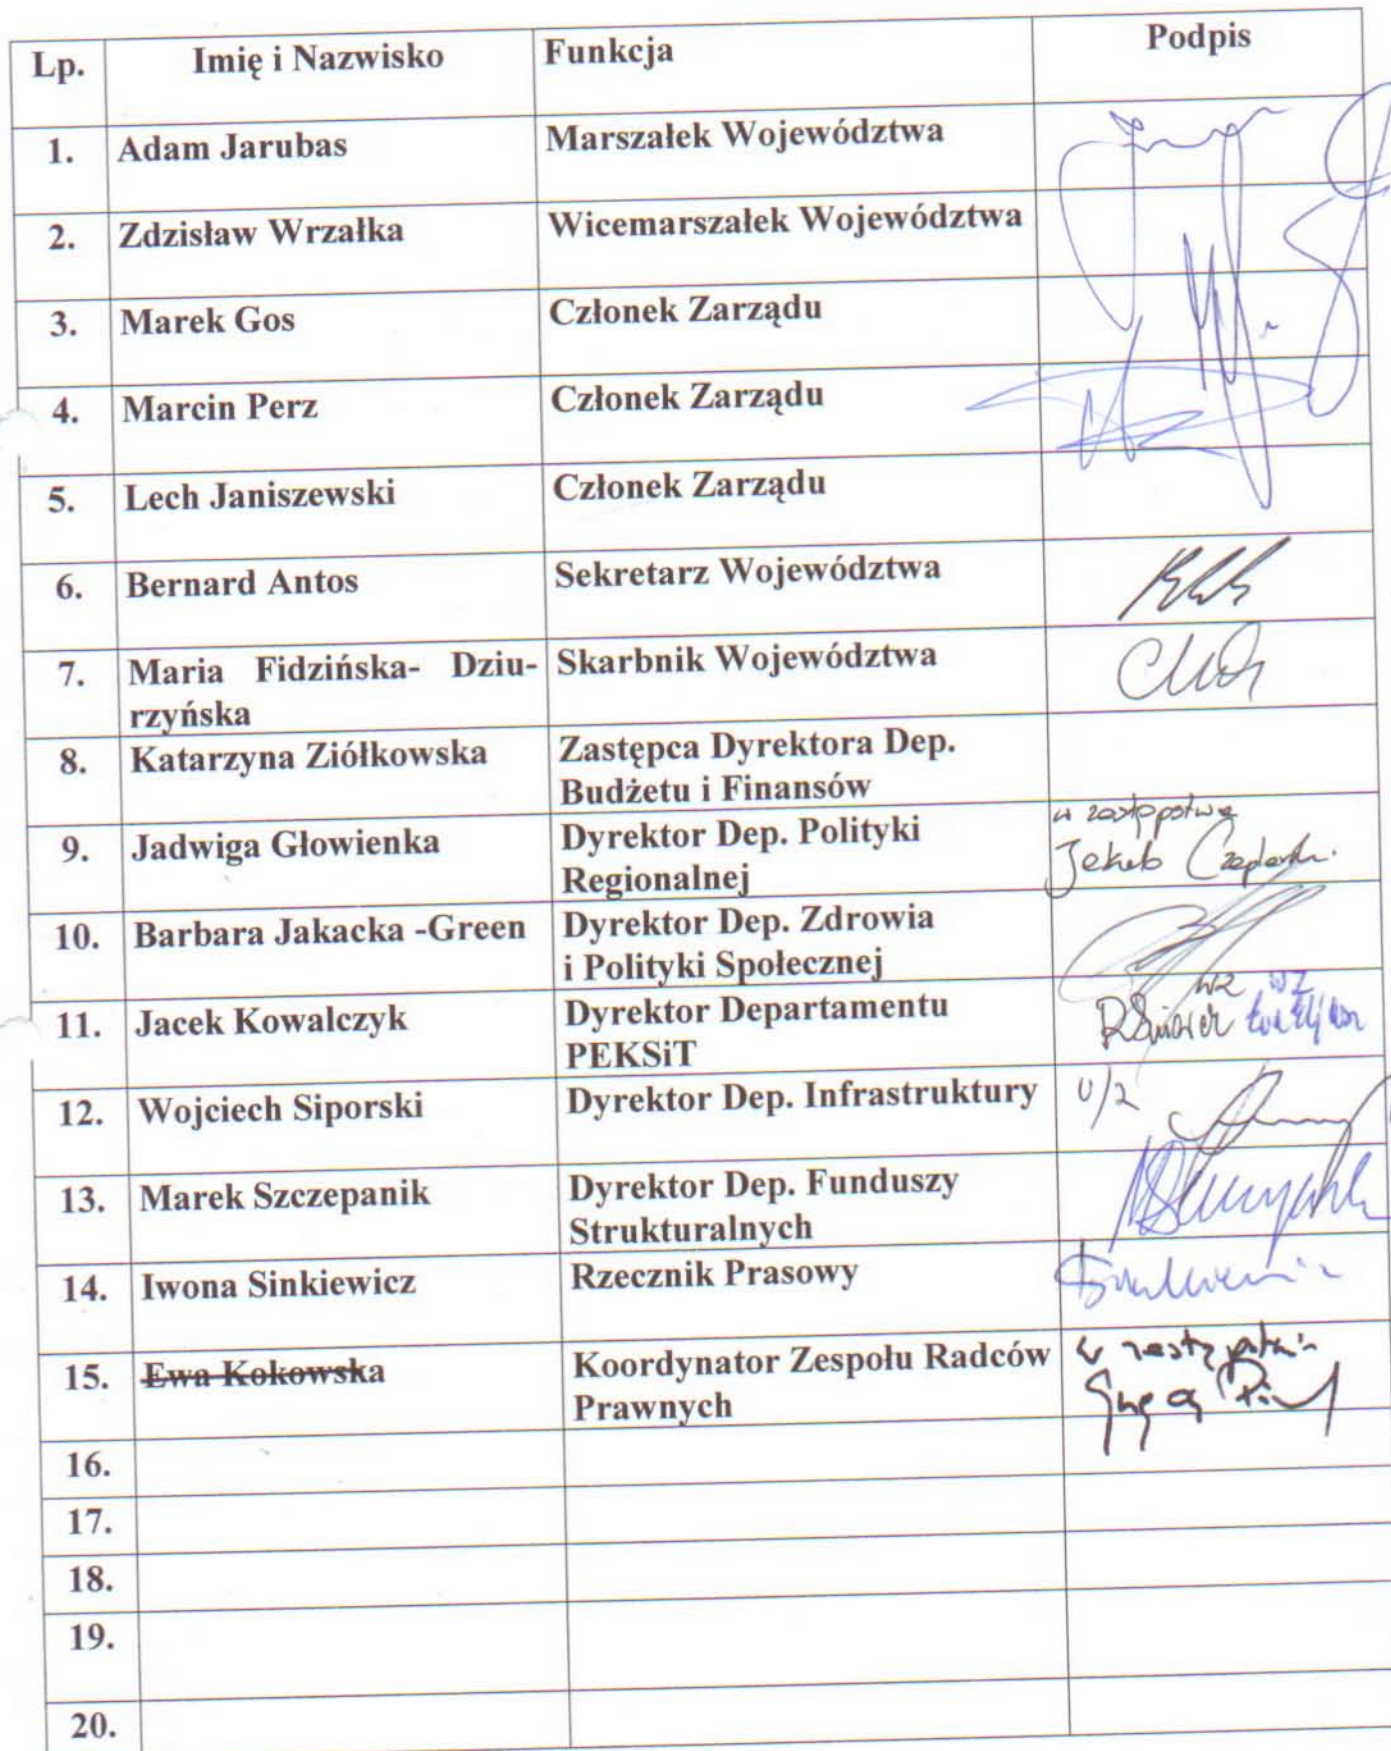 Lp. Imię i Nazwisko Funkcja Podpis
1. Adam Jarubas Marszałek Województwa
2. Zdzisław Wrzałka Wicemarszałek Województwa
3. Marek Gos Członek Zarządu
4. Marcin Perz Członek Zarządu
5. Lech Janiszewski Członek Zarządu
6. Bernard Antos Sekretarz Województwa
7. Maria Fidzińska- Dziu- Skarbnik Województwa
rzyńska
8. Katarzyna Ziółkowska Zastępca Dyrektora Dep.
Budżetu i Finansów
9. Jadwiga Głowienka Dyrektor Dep. Polityki
Regionalnej
w zastępstwie
Jakub
10. Barbara Jakacka -Green Dyrektor Dep. Zdrowia
i Polityki Społecznej
11. Jacek Kowalczyk Dyrektor Departamentu
PEKSiT
wz wz
12. Wojciech Siporski Dyrektor Dep. Infrastruktury
13. Marek Szczepanik Dyrektor Dep. Funduszy
Strukturalnych
14. Iwona Sinkiewicz Rzecznik Prasowy
15. Ewa Kokowska Koordynator Zespołu Radców
Prawnych
16.
17.
18.
19.
20.